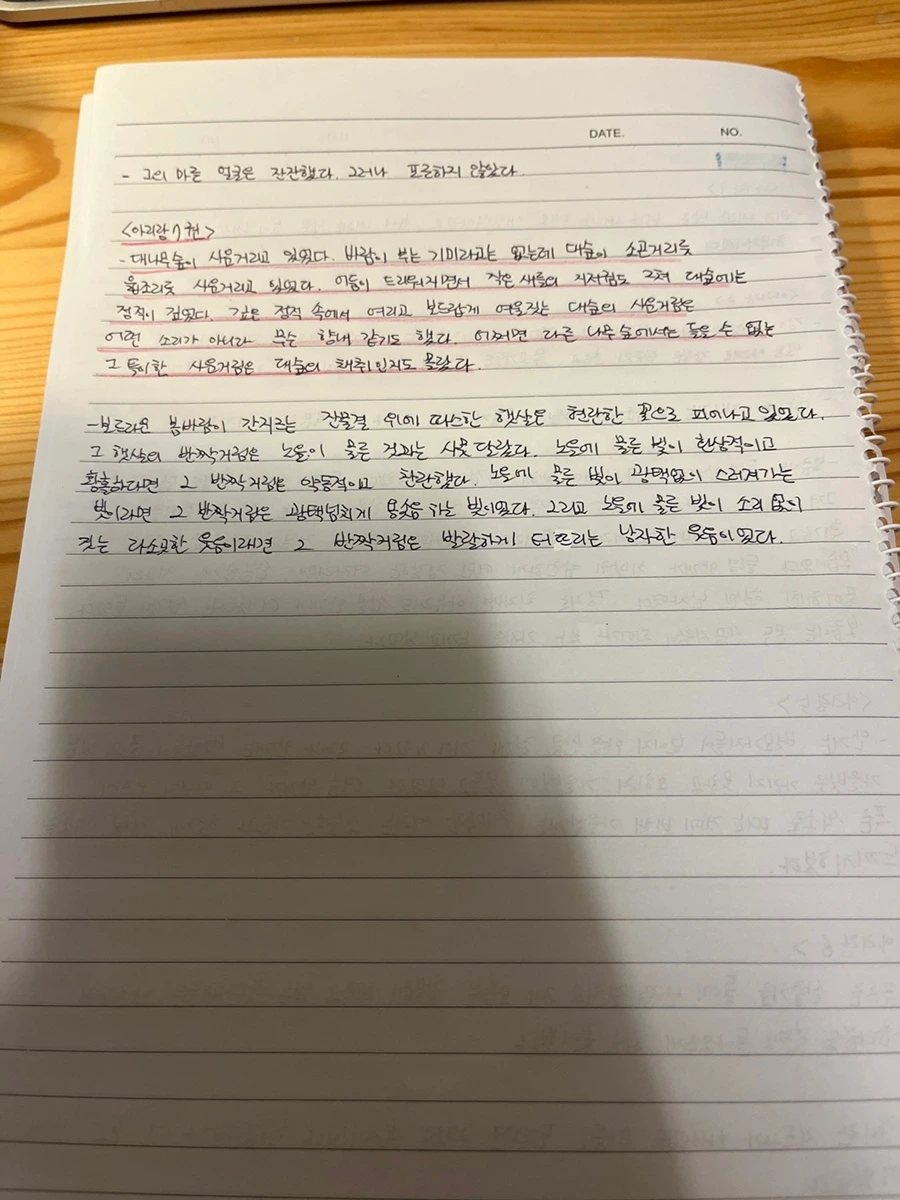 DATE.
NO.
- 그의 마른 얼굴은 잔잔했다. 그러나 포근하지 않았다.
<아리랑 7권>
- 대나무숲이 사운거리고 있었다. 바람이 부는 기미라고는 없는데 대숲이 소곤거리듯
읊조리듯 사운거리고 있었다. 어둠이 드리워지면서 작은 새들의 지저귐도 그쳐 대숲에는
정적이 깊었다. 깊은 정적 속에서 여리고 보드랍게 여울짓는 대숲의 사운거림은
어떤 소리가 아니라 무슨 향내 같기도 했다. 어쩌면 다른 나무숲에서는 들을 수 없는
그 특이한 사운거림은 대숲의 체취인지도 몰랐다.
- 보드라운 봄바람이 간지르는 잔물결 위에 따스한 햇살은 현란한 꽃으로 피어나고 있었다.
그 햇살의 반짝거림은 노을이 물든 것과는 사뭇 달랐다. 노을에 물든 빛이 환상적이고
황홀하다면 그 반짝거림은 약동적이고 찬란했다. 노을에 물든 빛이 광택없이 스러져가는
빛이라면 그 반짝거림은 광택넘치게 용솟음 하는 빛이었다. 그리고 노을에 물든 빛이 소리 없이
짓는 다소곳한 웃음이라면 그 반짝거림은 발랄하게 터뜨리는 낭자한 웃음이었다.